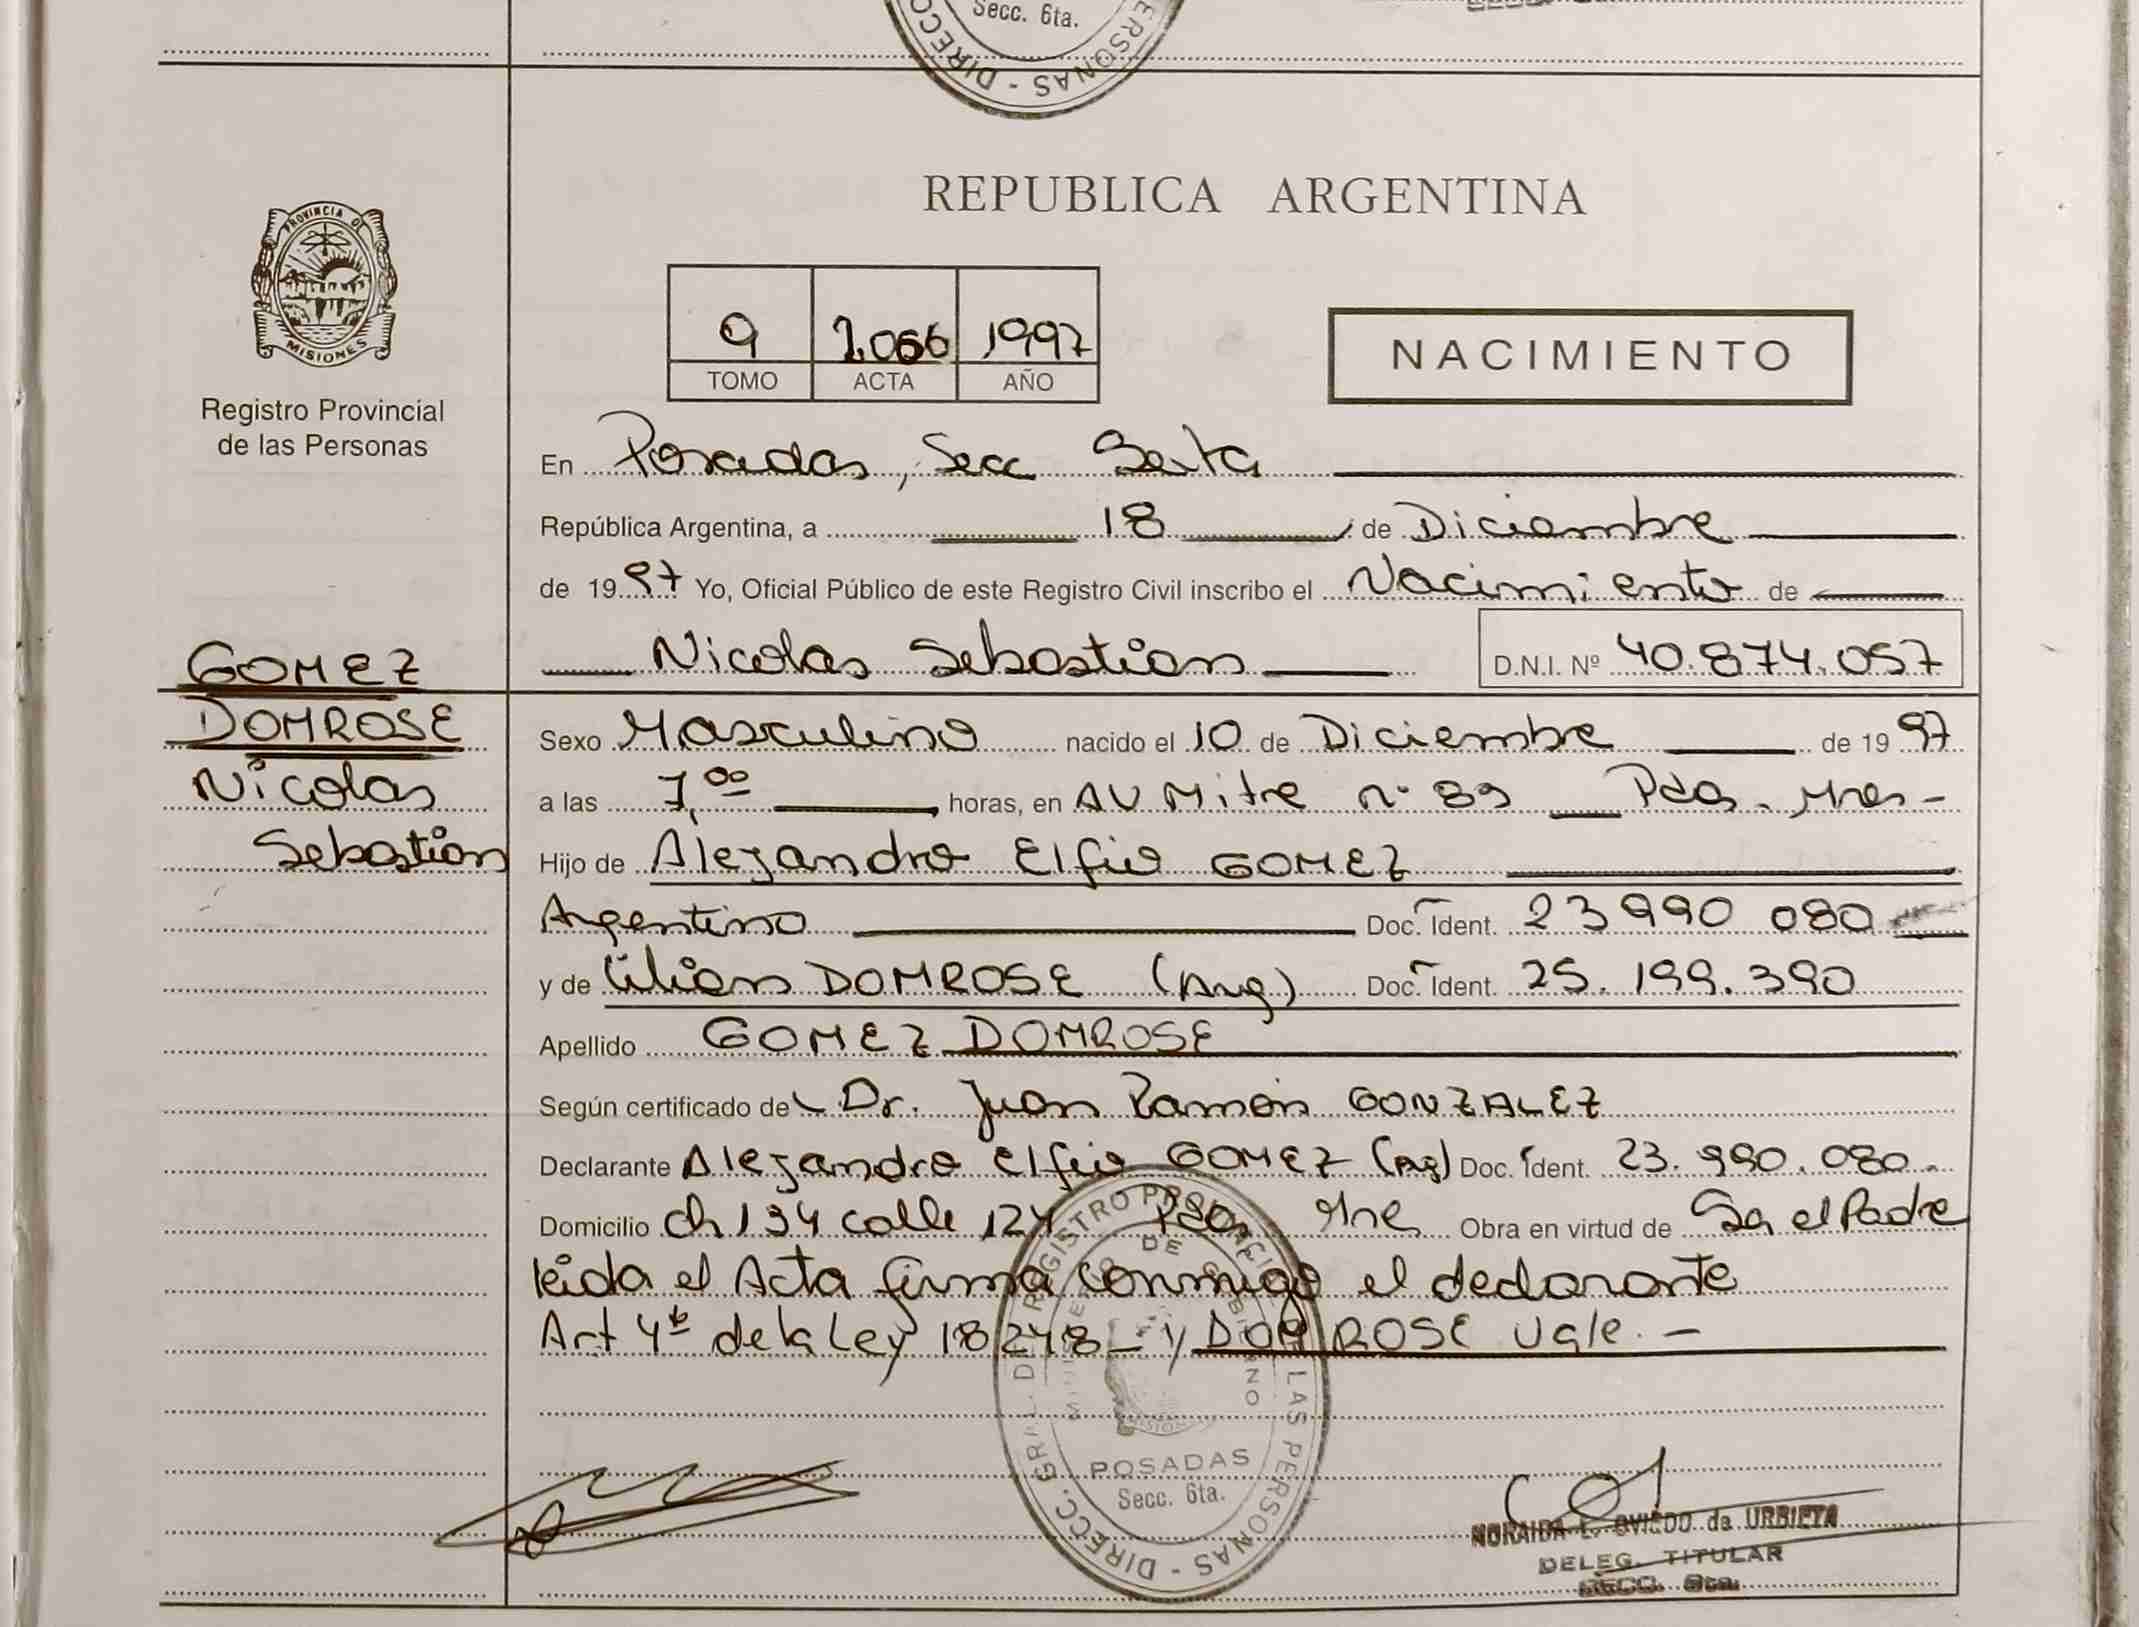 Secc. 6ta.
DIRECC
PERSONAS -
PROVINCIA DE
MISIONES
Registro Provincial
de las Personas
REPUBLICA ARGENTINA
9 2.066 1997
TOMO ACTA AÑO
NACIMIENTO
En Posadas, Secc Sexta
República Argentina, a 18 de Diciembre
de 1997 Yo, Oficial Público de este Registro Civil inscribo el Nacimiento de
Nicolas Sebastian D.N.I. Nº 40.874.057
GOMEZ
DOMROSE
Nicolas
Sebastian
Sexo Masculino nacido el 10 de Diciembre de 1997
a las 7,00 horas, en AV Mitre nº 89 Pdas. Mnes-
Hijo de Alejandro Elfio GOMEZ
Argentino Doc. Ident. 23 990 080
y de Lilian DOMROSE (Arg) Doc. Ident. 25.199.390
Apellido GOMEZ DOMROSE
Según certificado del Dr. Juan Ramón GONZALEZ
Declarante Alejandro Elfio GOMEZ (Arg) Doc. Ident. 23.990.080.
Domicilio ch 134 calle 124 Pdas Mnes Obra en virtud de Ser el Padre
leida el Acta firma conmigo el declarante
Art 4º de la Ley 18248 - y DOMROSE Vale. -
DIRECC. GRAL. DEL REGISTRO PROVINCIAL DE LAS PERSONAS -
MINISTERIO DE GOBIERNO
MISIONES
POSADAS
Secc. 6ta.
NORAIDA L. OVIEDO de URBIETA
DELEG. TITULAR
SECC. 6ta.